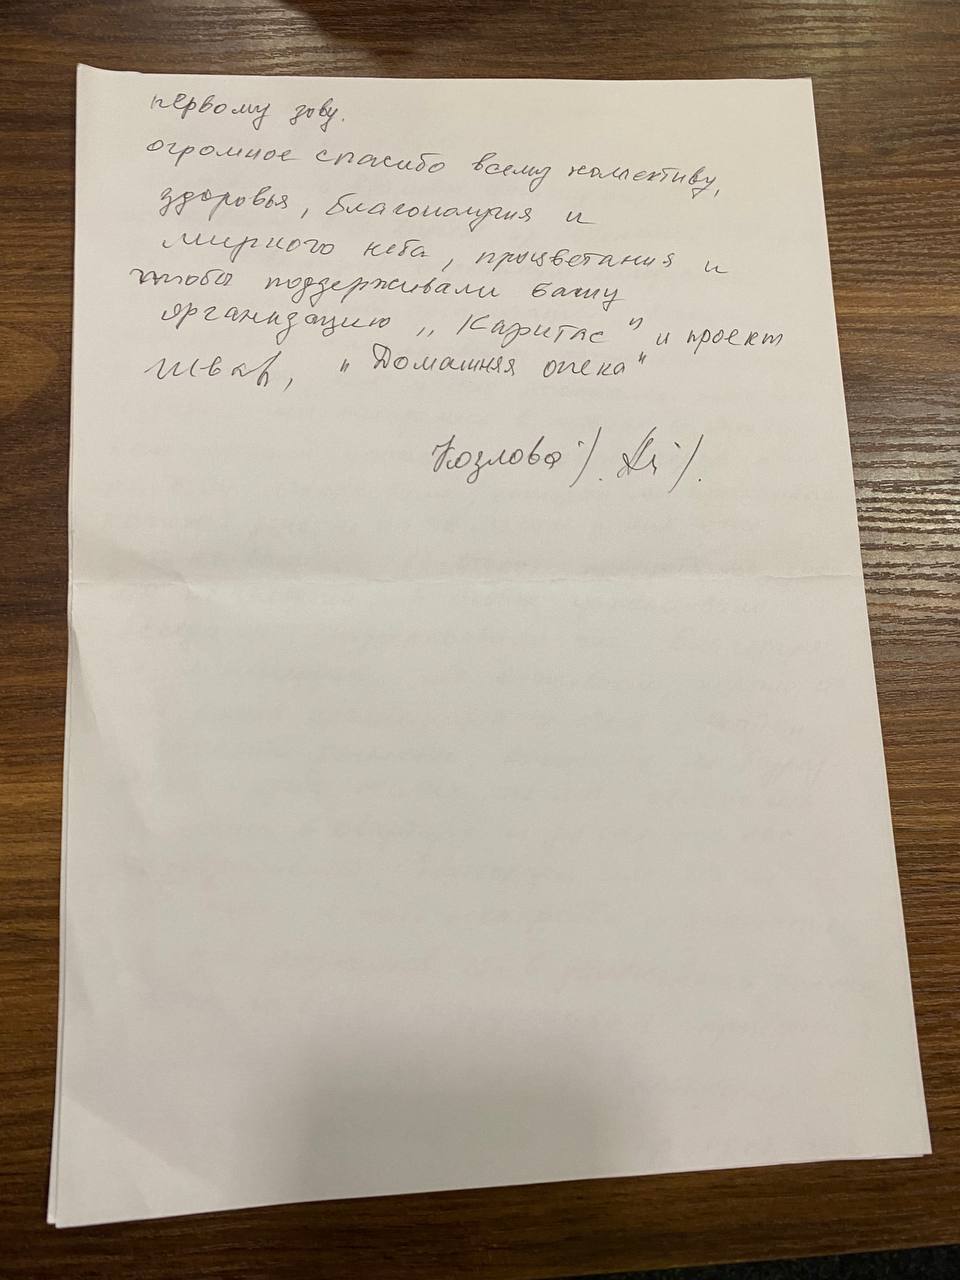 первому зову.
огромное спасибо всему коллективу,
здоровья, благополучия и
мирного неба, процветания и
чтобы поддерживали вашу
организацию „Каритас" и проект
"Домашняя опека"
Козлова /. /.